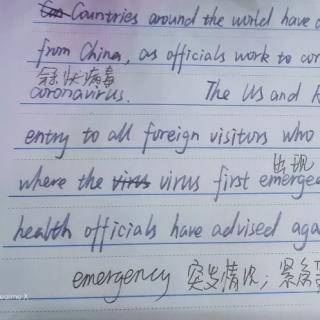 Countries around the world have
from China, as officials work to
冠状病毒
coronavirus. The US and
entry to all foreign visitors who
出现
where the virus virus first emerged
health officials have advised
emergency 突发情况；紧急
realme X